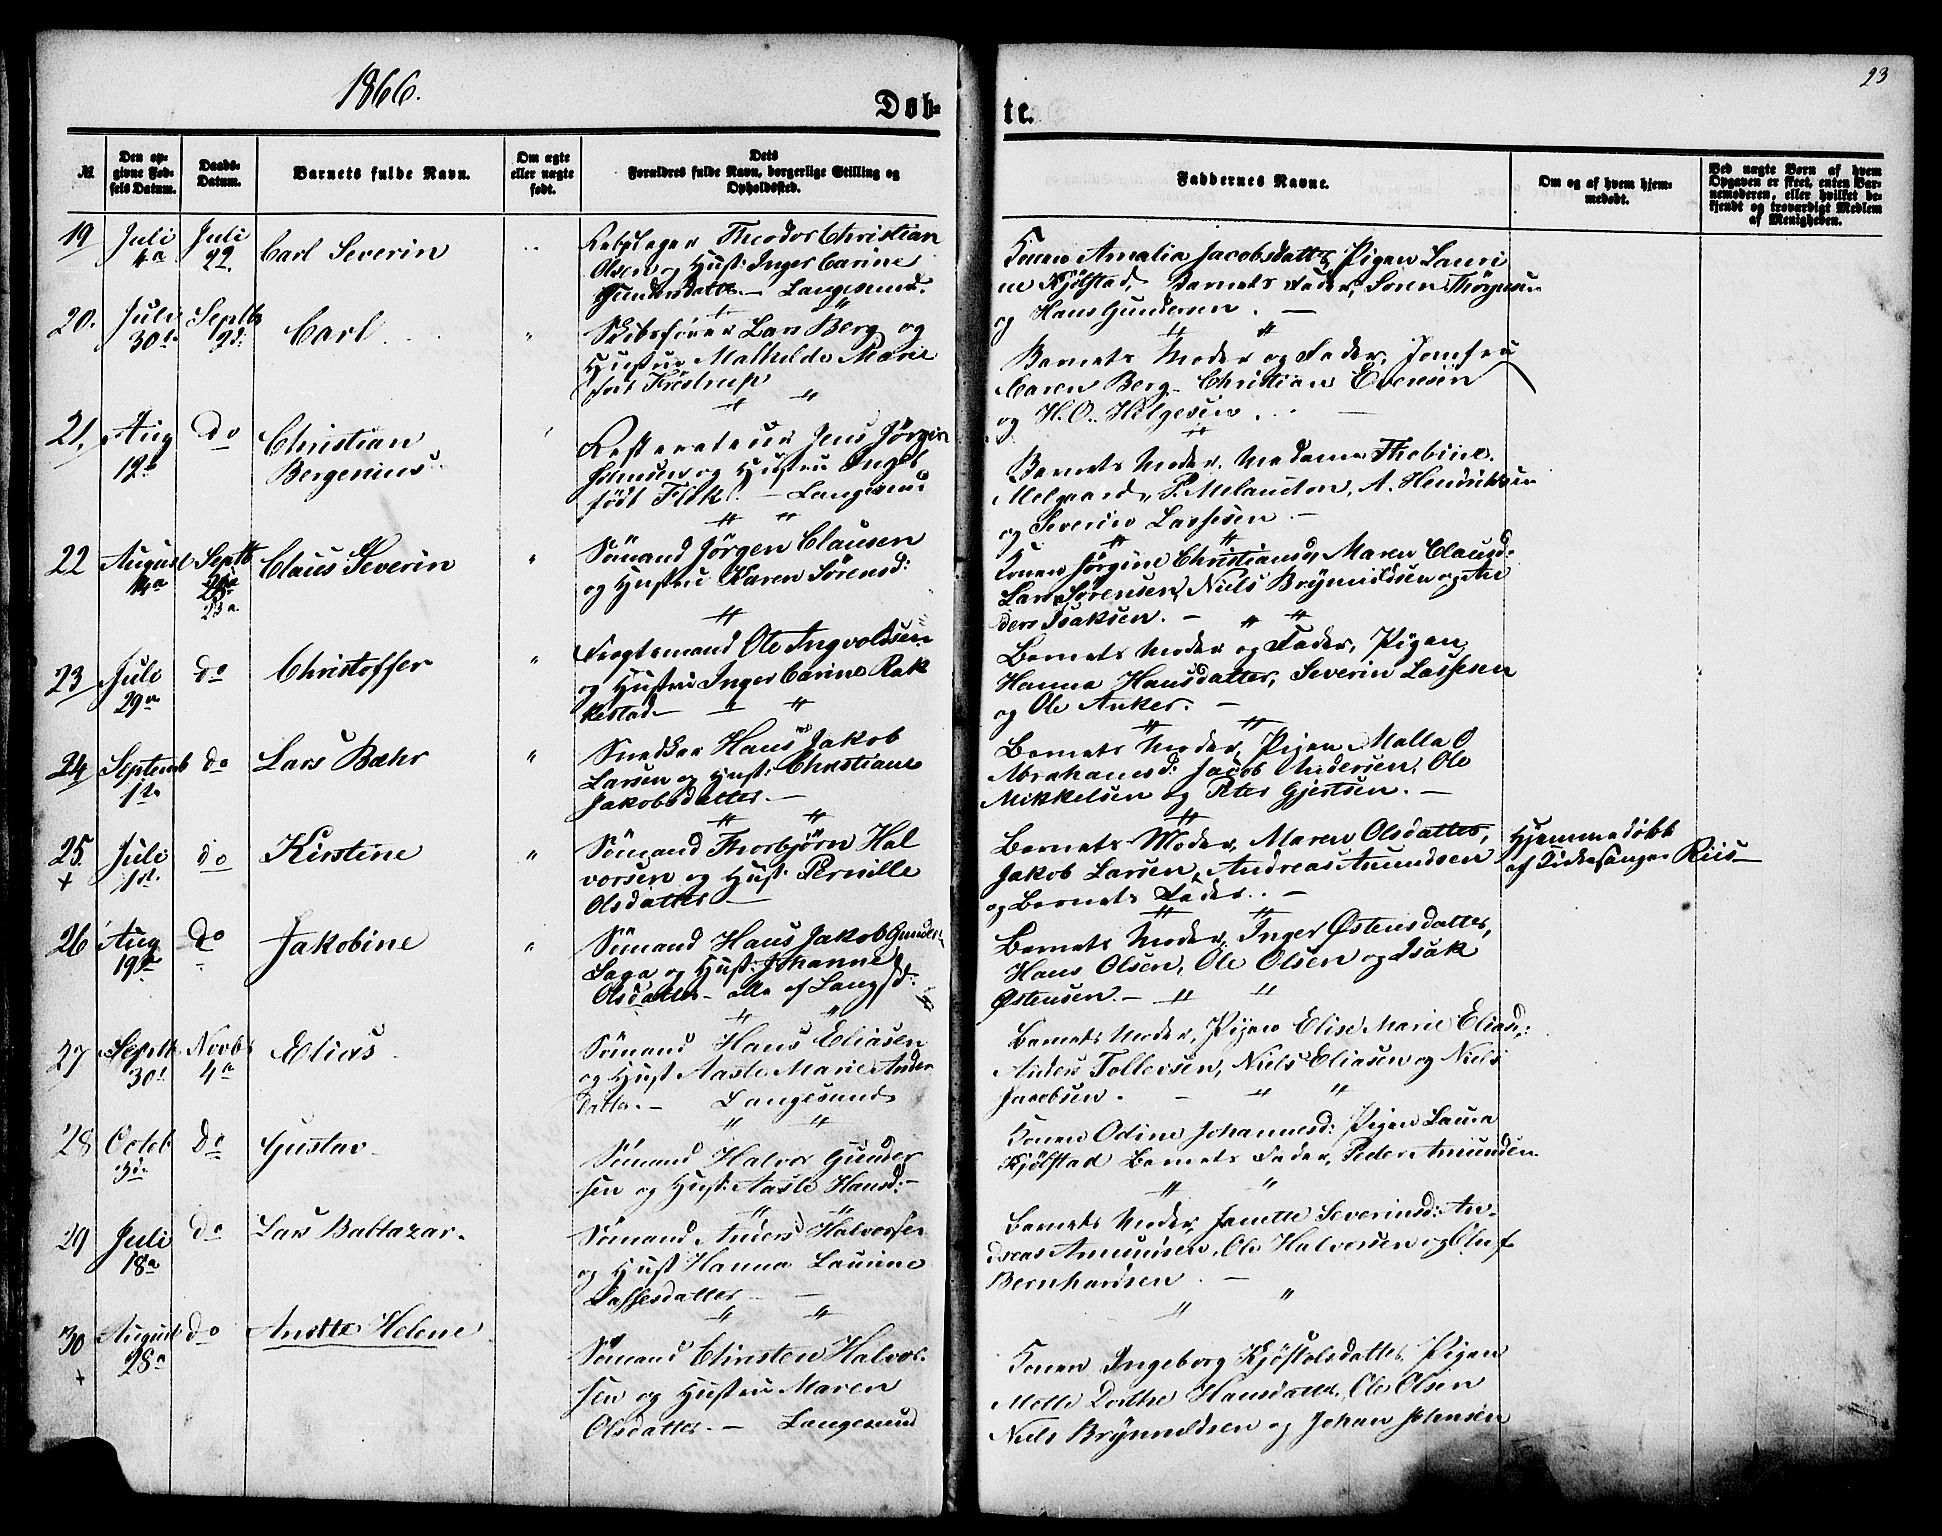 1866.
23
Døb-
te.
№
Den op-
givne Fød-
sels Datum.
Daabs-
Datum.
Barnets fulde Navn.
Om ægte
eller uægte
født.
Dets
Forældres fulde Navn, borgerlige Stilling og
Opholdssted.
Faddernes Navne.
Om og af hvem hjem-
medøbt.
Ved uægte Børn af hvem
Opgaven er skeet, enten Bar-
nemoderen, eller hvilket be-
kjendt og troværdigt Medlem
af Menigheden.
19
Juli
4a
Juli
22.
Carl Severin
Rebslager Theodor Christian
Olsen og Hust: Inger Carine
Gundersdatter. — Langesund.
Konen Amalia Jacobsdatter, Pigen Lauri
ne Kjölstad, Barnets Fader, Soren Thorgersen
og Hans Gundersen. —
20.
Juli
30d.
Septb
9d:
Carl
Skibsfører Lars Berg og
Hustru Mathilde Marie
født Friestrup
Barnets Moder og Fader, Jomfru
Caren Berg, Christian Evensen
og H. O. Helgesen.
21.
Aug
12d
Do
Christian
Bergenius
Jens Jörgen
Johnsen og Hustru Ingeb
født Flik. — Langesund
Barnets Moder, Madame Thobine
Melgaard, P. Melandon, A. Hendriksen
og Severin Lassesen —
22
August
14a
Septb
23a
Claus Severin
Sömand Jörgen Clausen
og Hustru Karen Sörensd:
Konen Jörgine Christiansd, Maren Clausd:
Lars Sörensen, Niels Brynnildsen og An
ders Isaksen. —
23
Juli
29a
do
Christoffer
Fragtemand Ole Ingvoldsen
og Hustru Inger Carine Rak
kestad —
Barnets Moder og Fader, Pigen
Hanna Hansdatter, Severin Lassesen
og Ole Anker. —
24
Septemb
1ste
do
Lars Bæhr
Snedker Hans Jakob
Larsen og Hust: Christiane
Jakobsdatter. —
Barnets Moder, Pigen Malla O
Abrahamsd: Jacob Andersen, Ole
Mikkelsen og Peter Gjertsen. —
25.
+
Juli
1st.
do
Kirstine
Sömand Thorbjörn Hal
vorsen og Hust: Pernille
Olsdatter —
Barnets Moder, Maren Olsdatter,
Jakob Larsen, Andreas Amundsen
og Barnets Fader. —
Hjemmedøbt
af Kirkesanger Riis —
26
Aug
19de
Do
Jakobine
Sömand Hans Jakob Gunder-
Saga og Hust: Johanne
Olsdatter — alle af Langsd:
Barnets Moder, Inger Østensdatter,
Hans Olsen, Ole Olsen og Isak
Østensen. —
27
Septb
30t
Novbr
4a
Elias
Sömand Hans Eliasen
og Hust Aaste Marie Ander
datter. — Langesund
Barnets Moder, Pigen Elise Marie Eliasd:
Anders Tollevsen, Niels Eliasen og Niels
Jacobsen. —
28
Octob
3di.
Do
Gustav
Sömand Halvor Gunder
sen og Hust: Aaste Hansd: —
Konen Odine Johannesd: Pigen Laura
Kjölstad Barnets Fader, Peder Amundsen
29
Juli
18a
Do
Lars Baltazar.
Sömand Anders Halvorsen
og Hust Hanna Laurine
Lassesdatter —
Barnets Moder, Janette Severinsd: An-
dreas Amundsen, Ole Halvorsen og Oluf
Bernhardsen. —
30
+
August
28a
do
Anette Helene
Sömand Christen Halvor-
sen og Hustru Maren
Olsdatter. — Langesund
Konen Ingeborg Kjöstolsdatter, Pigen
Mette Dorthe Hansdatter, Ole Olsen
Niels Brynnildsen og Johan Johnsen